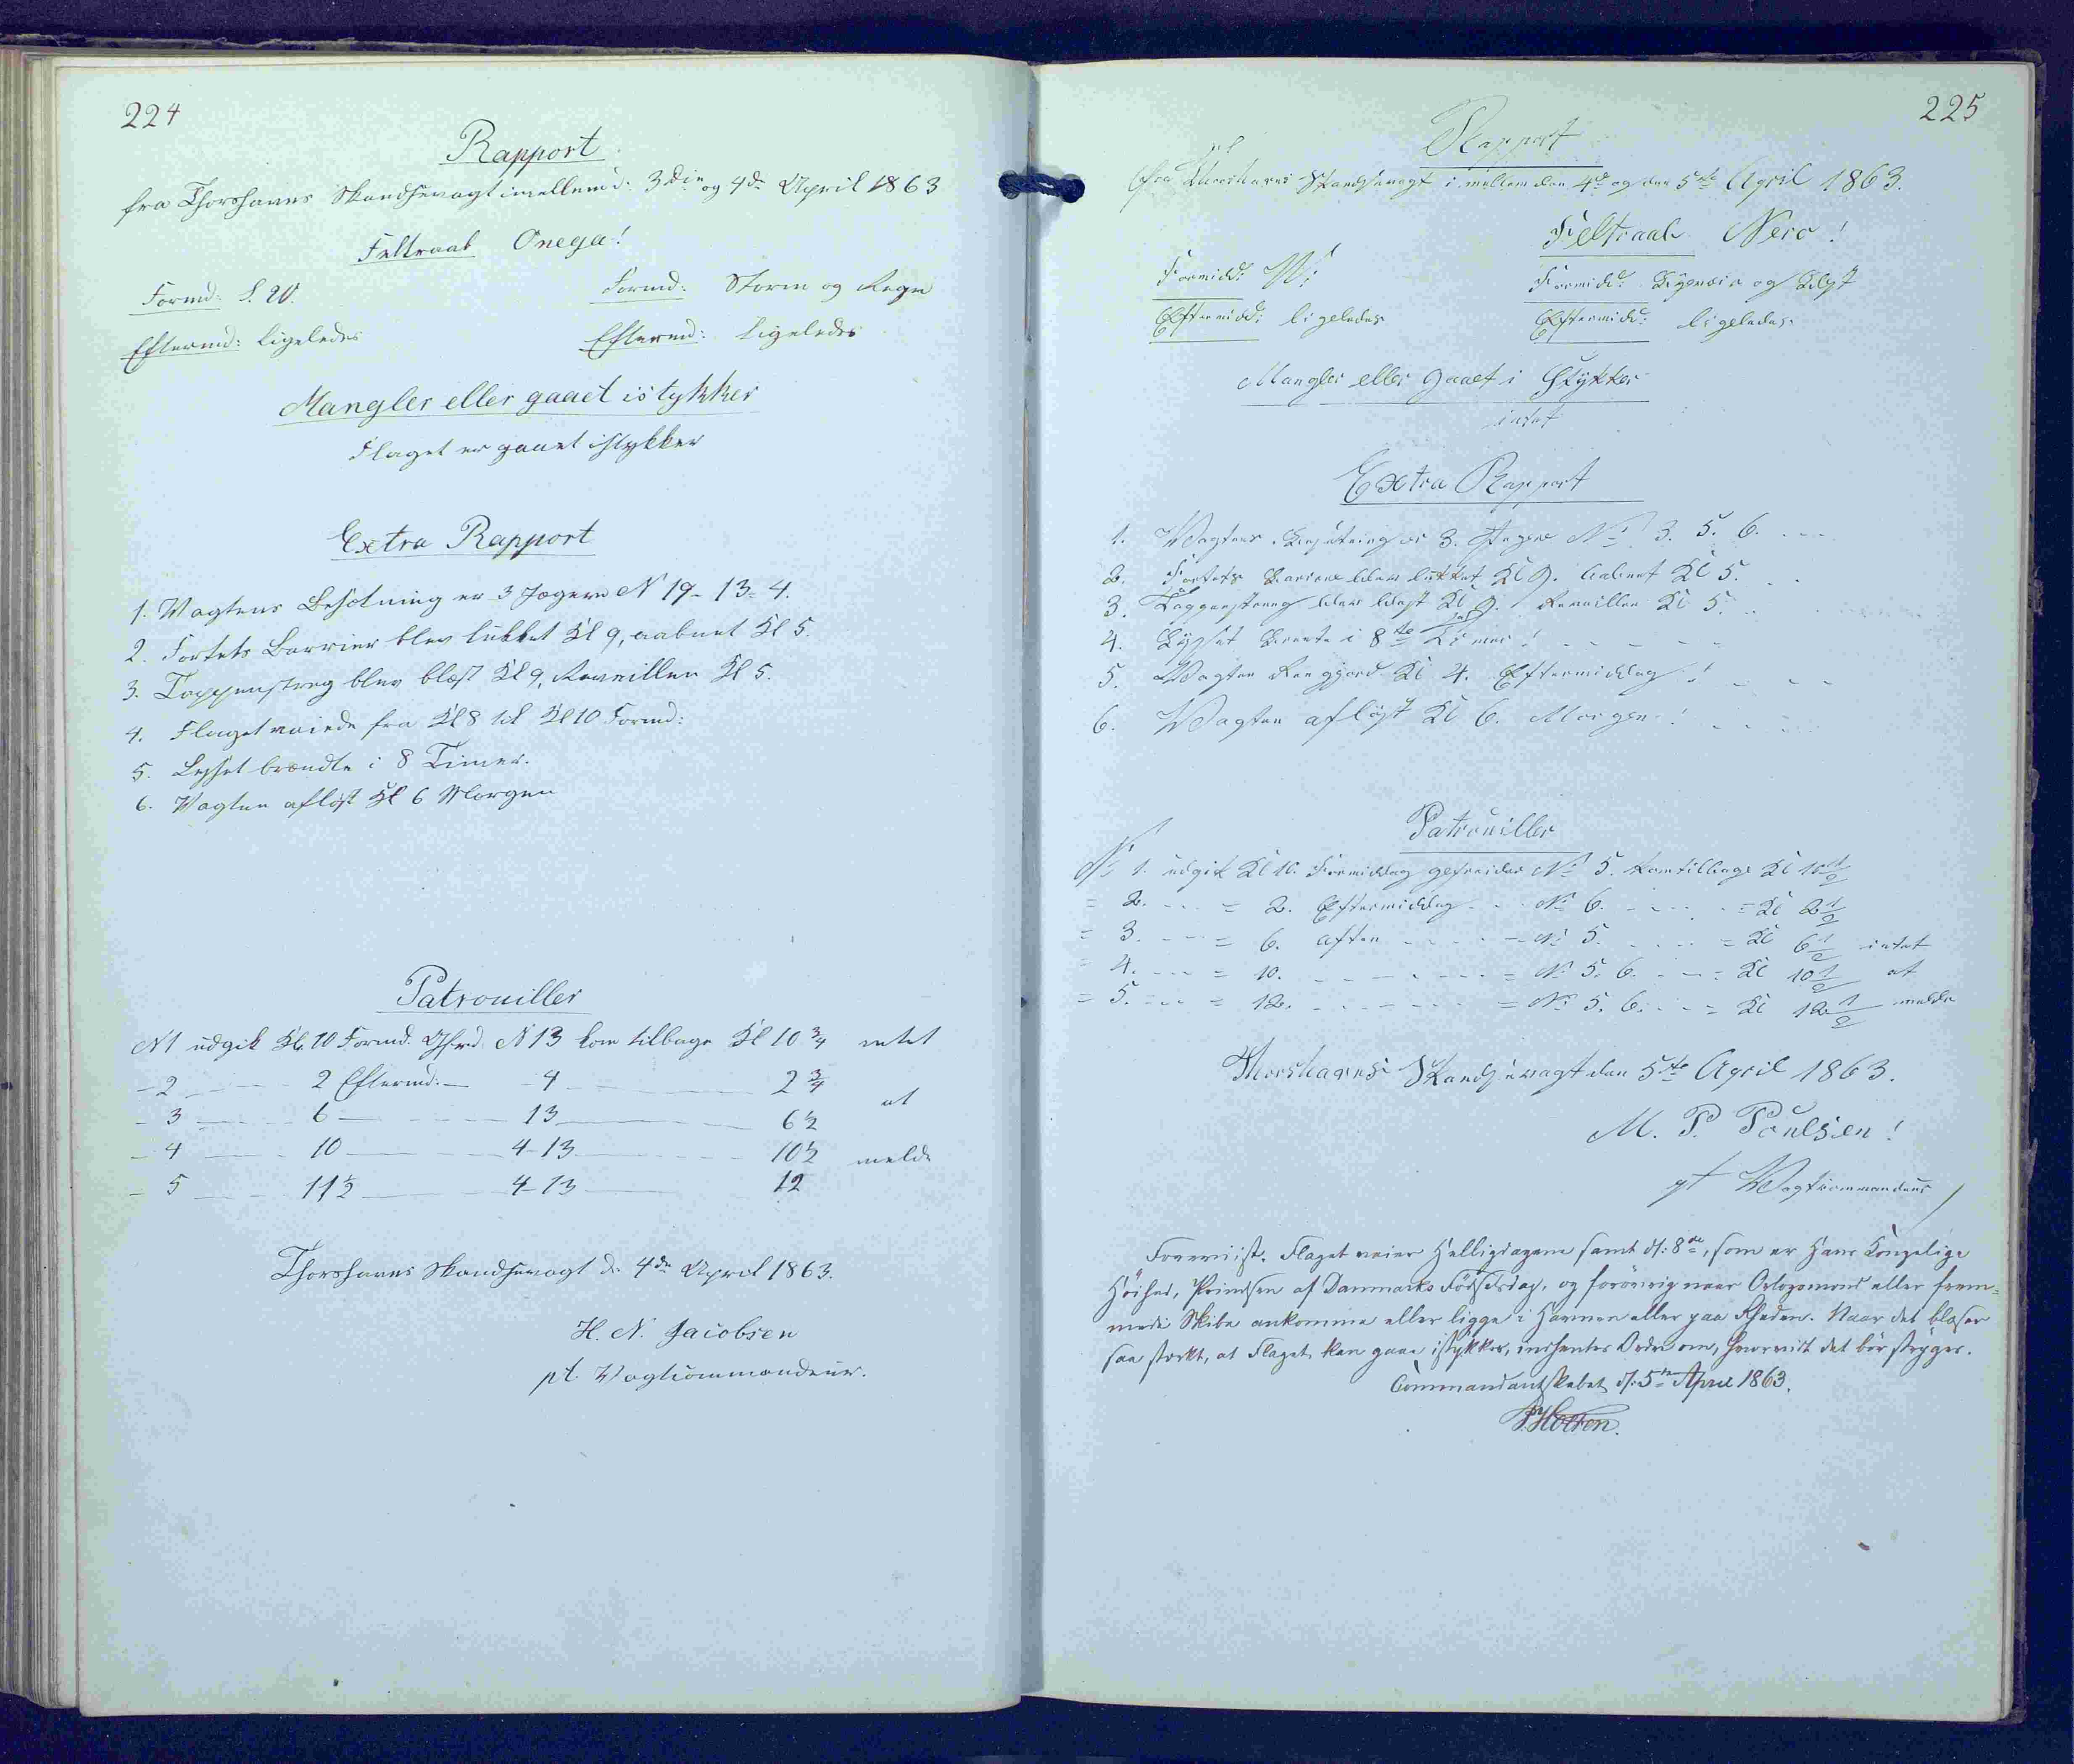 224
Rapport
fra Thorshavns Skandsevagt imellem d: 3die og 4de April 1863
Feltraab Onega!
Formd: S. V. Formd: Storm og Regn
Eftermd: ligeledes Eftermd: Ligeledes
Mangler eller gaaet istykker
Flaget er gaaet istykker
Extra Rapport
1. Vagtens Besætning er 3 Jægere N 19 - 13 - 4.
2. Fortets Barrier blev lukket Kl 9, aabnet Kl 5.
3. Tappenstreg blev blæst Kl 9, Reveillen Kl 5.
4. Flaget vaiede fra Kl 8 til Kl 10 Formd:
5. Lyset brændte i 8 Timer.
6. Vagten afløst Kl 6 Morgen
Patrouiller
N 1 udgik Kl. 10 Formd. Gfrd. N 13 kom tilbage Kl 10 3/4 intet
- 2 - 2 Eftermd: - - 4 - 2 3/4
at
- 3 - 6 - 13 - 6 1/2
- 4 - 10 - 4-13 - 10 1/2 melde
- 5 - 11 1/2 - 4-13 - 12
Thorshavns Skandsevagt d. 4de April 1863.
H. N. Jacobsen
pt. Vagtcommandeur.
225
Rapport
fra Thorshavns Skandsevagt i mellem den 4de og den 5te April 1863.
Feltraab Nero!
Formidd: V: Formidd:
Eftermidd: ligeledes Eftermidd: ligeledes.
Mangler eller Gaaet i Stykker
intet
Extra Rapport
1. Wagtens Besætning er 3. Jægere No 3. 5. 6. - - -
2. Fortets Bariere blev lukket Kl 9. Aabnet Kl 5. - -
3. Tappenstreng blev blæst Kl 9. Reveillen Kl 5. - -
4. Lyset Brente i 8te Timer! - - - - -
5. Wagten Rengjord Kl 4. Eftermiddag! - - -
6. Wagten afløst Kl 6. Morgen! - - -
Patrouiller
No 1. udgik Kl 10. Formiddag gefreider No 5. kom tilbage Kl 10 1/2
= 2. - - - = 2. Eftermiddag - - - No 6. - - - - = Kl 2 1/2
= 3. - - - = 6. Aften - - - - = No 5. - - - - = Kl 6 1/2 intet
= 4. - - - = 10. - - - - - - = No 5. 6. - - - = Kl 10 1/2 at
= 5. - - - = 12. - - - - - - = No 5. 6. - - - = Kl 12 1/2 melde
Thorshavns Skandsevagt den 5te April 1863.
M. P. Poulsen!
pt Wagtkommandeur
Foreviist. Flaget vaier Helligdagene samt d: 8de, som er Hans Kongelige
Höihed, Prindsen af Danmarks Födselsdag, og forövrig naar Orlogsmænd eller frem-
mede Skibe ankomme eller ligge i Havnen eller paa Rheden. Naar det blæser
saa stærkt, at Flaget kan gaae istykker, indhentes Ordre om, hvorvidt det bör stryges.
Commandantskabet d: 5te April 1863.